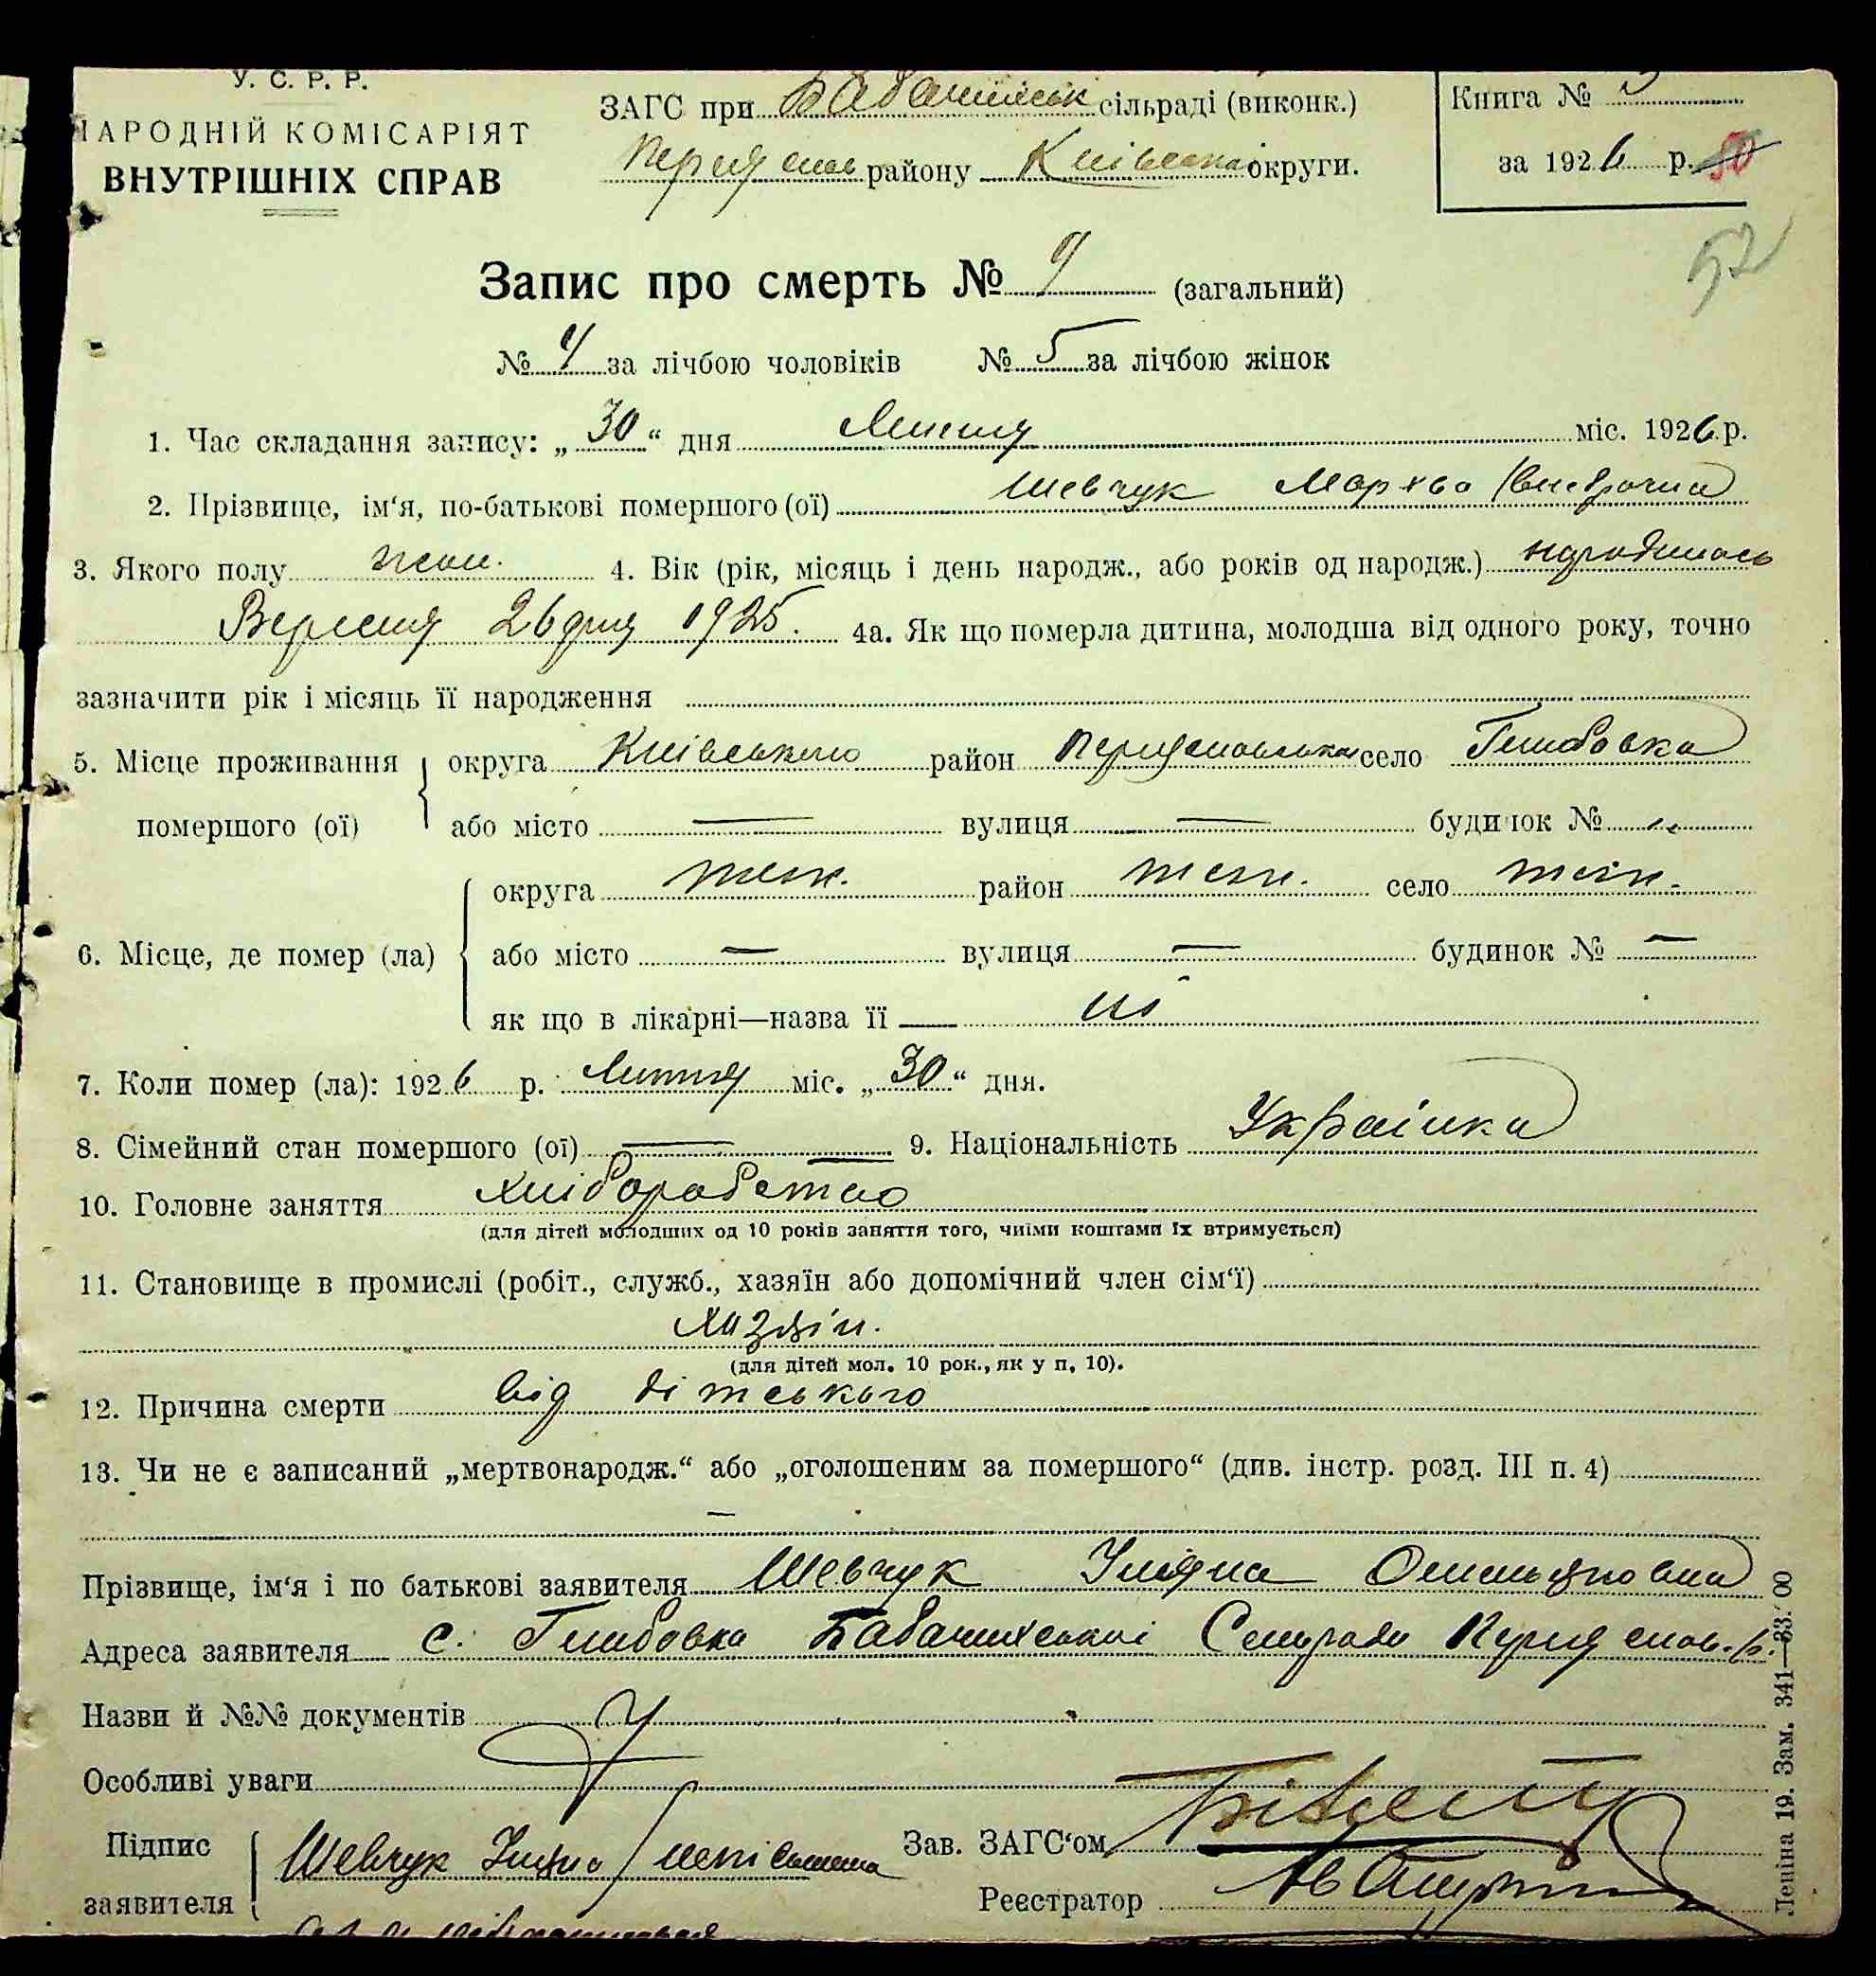 У. С. Р. Р.
НАРОДНІЙ КОМІСАРІЯТ
ВНУТРІШНІХ СПРАВ
ЗАГС при сільраді (виконк.)
району Київської округи.
Книга №
за 1926 р. 50
52
Запис про смерть № 9 (загальний)
№ 4 за лічбою чоловіків № 5 за лічбою жінок
1. Час складання запису: „30“ дня Липня міс. 1926 р.
2. Прізвище, ім‘я, по-батькові помершого (ої) Шевчук Мархва
3. Якого полу жон. 4. Вік (рік, місяць і день народж., або років од народж.) народилась
Вересня 26 дня 1925. 4а. Як що померла дитина, молодша від одного року, точно
зазначити рік і місяць її народження
5. Місце проживання округа район село
помершого (ої) або місто — вулиця — будинок №
округа теж. район теж. село теж.
6. Місце, де помер (ла) або місто — вулиця — будинок № —
як що в лікарні—назва її — ні
7. Коли помер (ла): 1926 р. Липня міс. „30“ дня.
8. Сімейний стан помершого (ої) — 9. Національність Українка
10. Головне заняття хліборобство
(для дітей молодших од 10 років заняття того, чиїми коштами їх втримується)
11. Становище в промислі (робіт., служб., хазяїн або допомічний член сім‘ї)
хазяїн.
(для дітей мол. 10 рок., як у п. 10).
12. Причина смерти від дітського
13. Чи не є записаний „мертвонародж.“ або „оголошеним за помершого“ (див. інстр. розд. III п. 4)
—
Прізвище, ім‘я і по батькові заявителя Шевчук Уляна
Адреса заявителя с.
Назви й №№ документів
Особливі уваги
Підпис заявителя Шевчук Уляна
Зав. ЗАГС‘ом
Реєстратор
Леніна 19. Зам. 341—33. 00